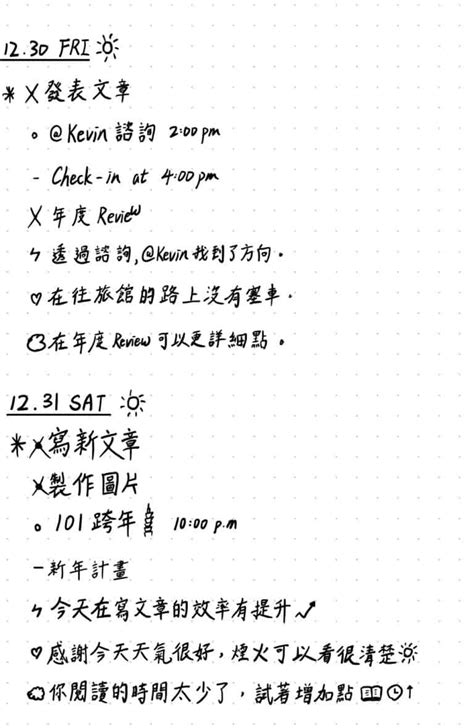 12.30 FRI
* X 發表文章
• @Kevin 諮詢 2:00pm
- Check-in at 4:00pm
X 年度 Review
ϟ 透過諮詢,@Kevin找到了方向。
♡ 在往旅館的路上沒有塞車.
在年度 Review 可以更詳細點。
12.31 SAT
* X 寫新文章
X 製作圖片
• 101 跨年 10:00 p.m
- 新年計畫
ϟ 今天在寫文章的效率有提升↗
♡ 感謝今天天氣很好,煙火可以看很清楚
你閱讀的時間太少了,試著增加點 ↑